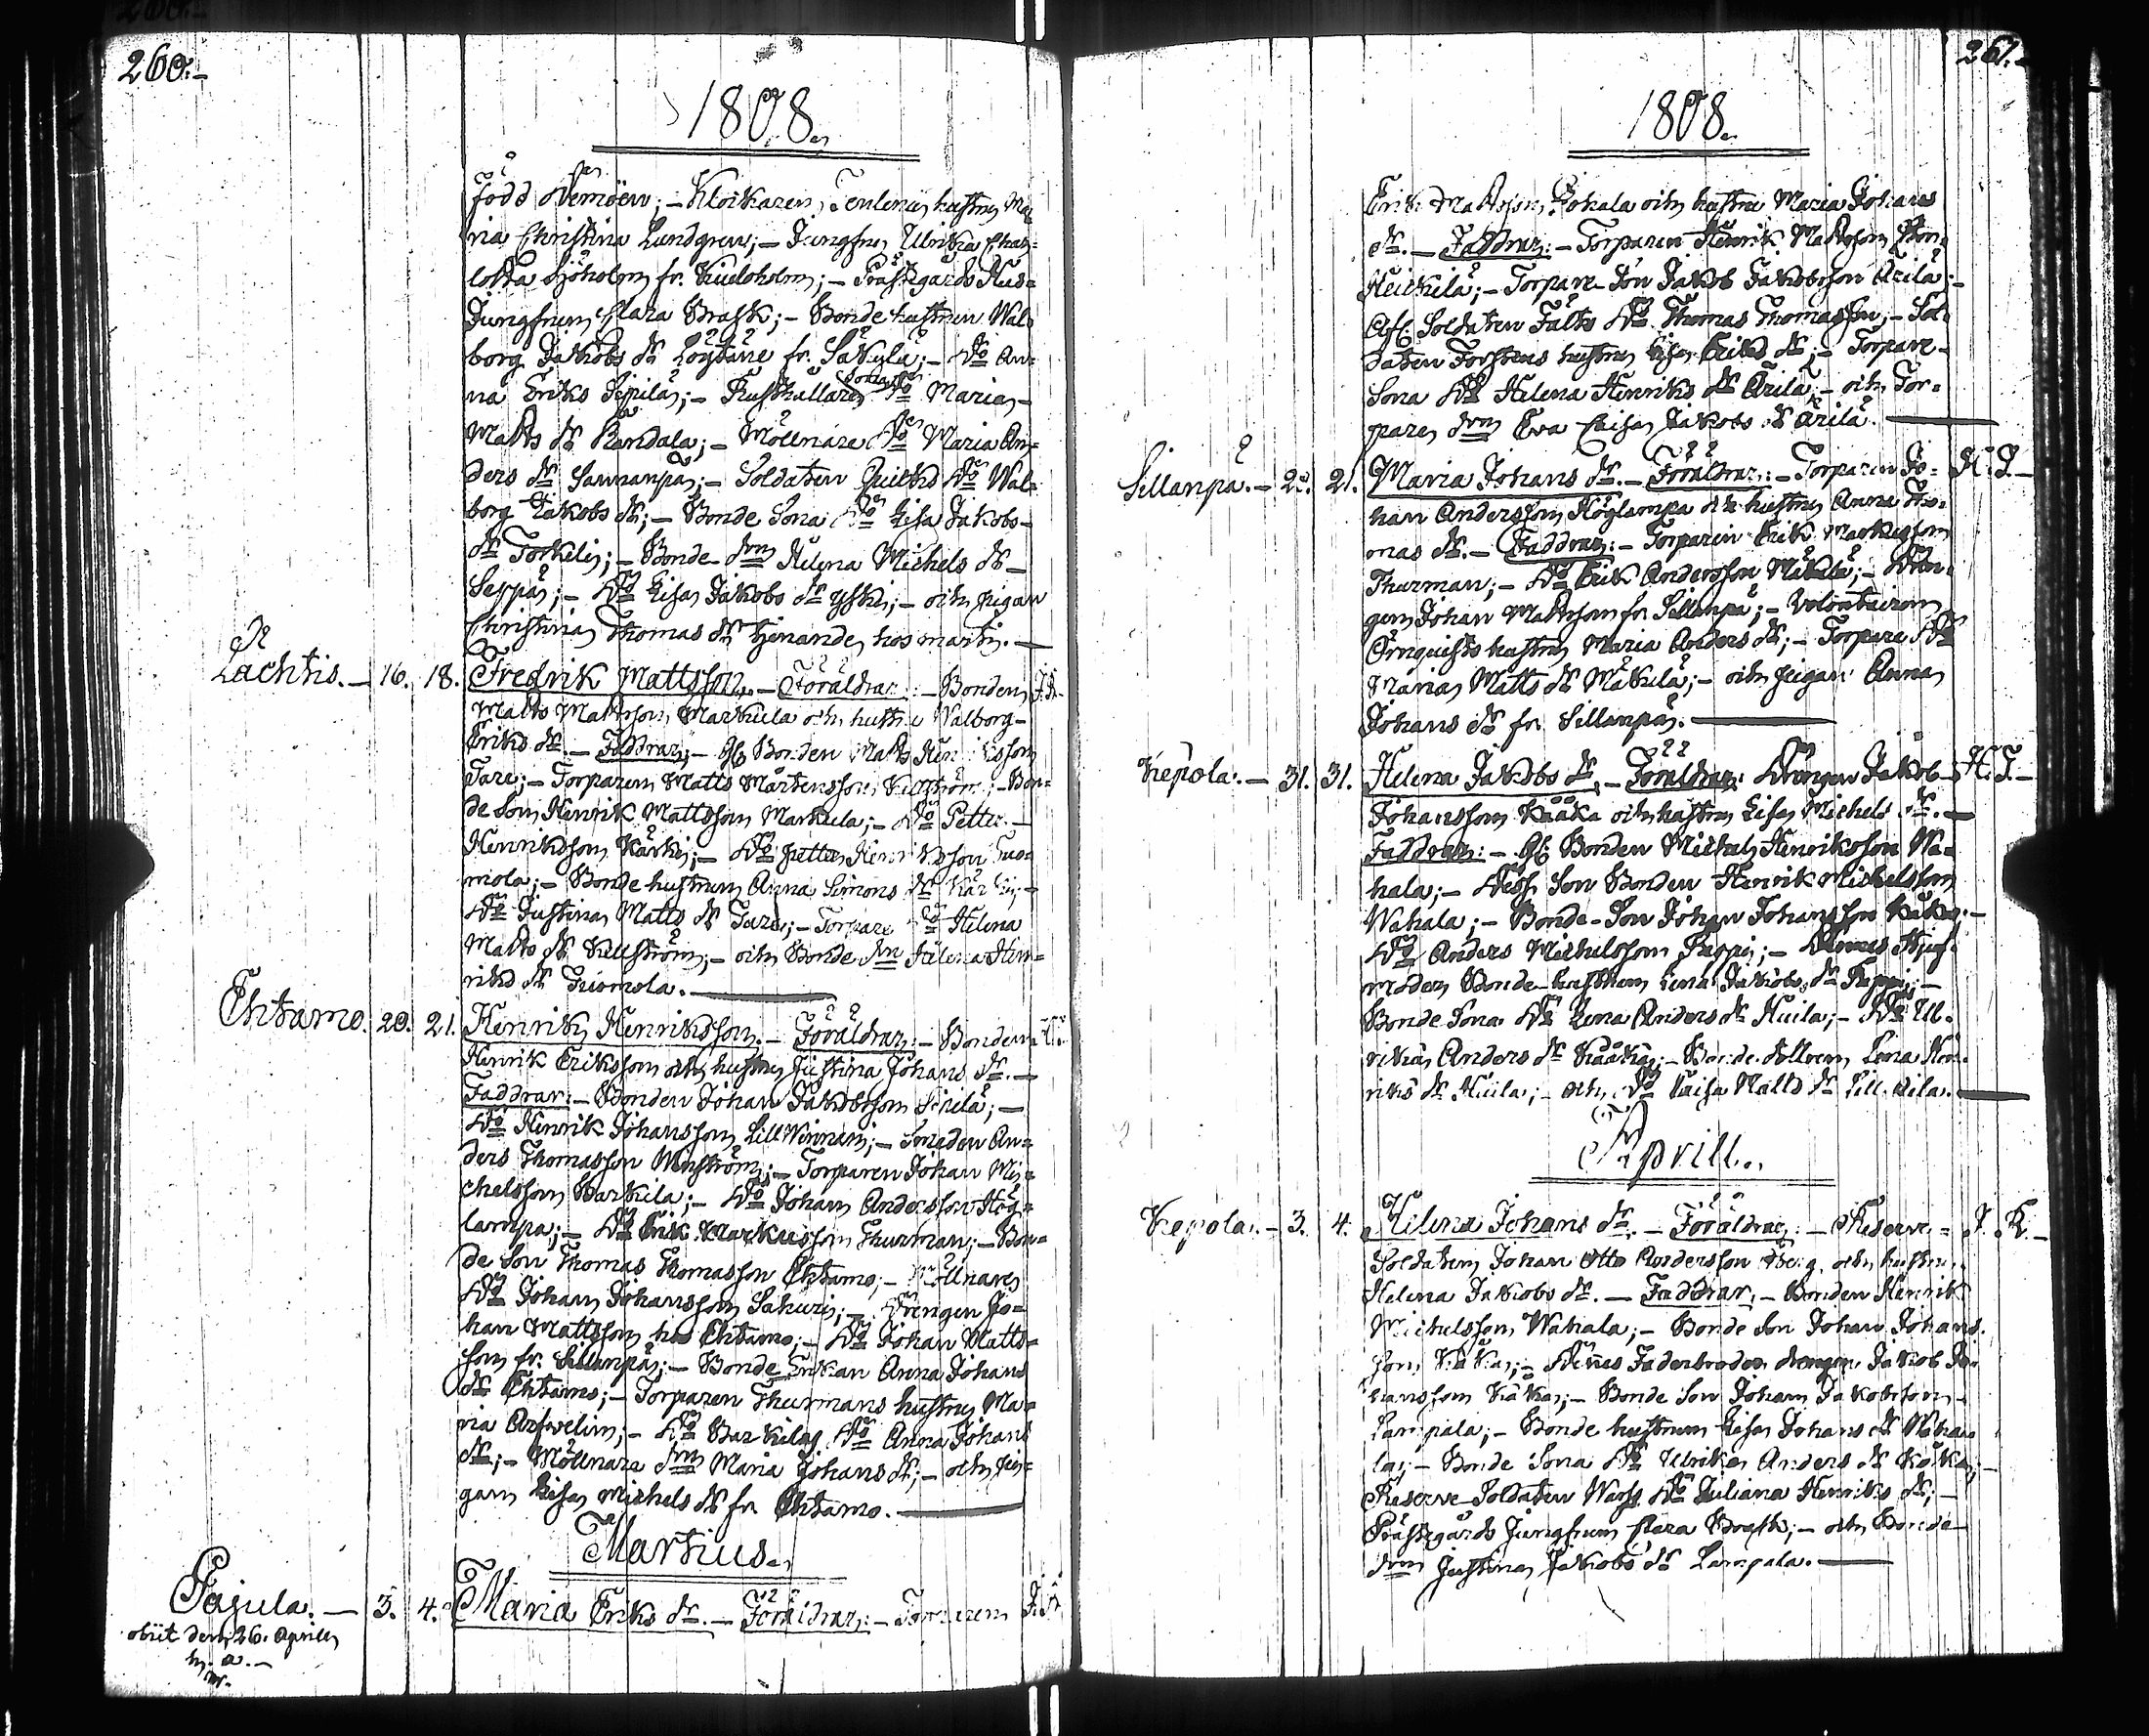 260.-
1808.
född Nemoëw; - Klockaren Tenlenii hustru Ma-
ria Christina Lundgren; - Jungfru Ulrika Char-
lotta Sjöholm fr. Kuuloholm; - Prästgårds Hus-
Jungfrun Clara Brask; - Bonde hustrun Wal-
borg Jakobs dr Löytäne fr. Säkylä; - Do An-
na Eriks Sipilä; - Maria
Matts dr Randala; - Möllnare Do Maria An-
ders dr Sannanpä; - Soldaten Quicks Do Wal-
borg Jakobs dr; - Bonde Sona Do Lisa Jakobs
dr Torkeli; - Bonde drn Helena Michels dr
Seppä; - Do Lisa Jakobs dr Yski; - och pigan
Christina Thomas dr tjenande hos Martti. -
Lachtis. - 16. 18. Fredrik Mattsson. - Föräldrar: - Bonden J.K.
Matts Mattsson Markula och hustru Walborg
Eriks dr. - Faddrar: - Gl. Bonden Matts Henriksson
Tare; - Torparen Matts Mårtensson Killström; - Bon-
de Son Henrik Mattsson Markula; - Do Petter
Henriksson Kärki; - Do Petter Henriksson Tuo-
mola; - Bonde hustrun Anna Simons dr Kärki; -
Do Justina Matts dr Tare; - Torpare Do Helena
Matts dr Killström; - och Bonde drn Helena Hen-
riks dr Tuomola.
Ehtamo. 20. 21. Henrik Henriksson. - Föräldrar: - Bonden
Henrik Eriksson och hustru Justina Johans dr. -
Faddrar: - Bonden Johan Jakobsson Sipilä; -
Do Henrik Johansson Lill Winnari; - Smeden An-
ders Thomasson Winström; - Torparen Johan Mi-
chelsson Barkila; - Do Johan Andersson Hög-
lampa; - Do Erik Markusson Thurman; - Bon-
de Son Thomas Thomasson Ehtamo; - Möllnare
Do Johan Johansson Sakuri; - Drengen Jo-
han Mattsson hos Ehtamo; - Do Johan Matts-
son fr. Sillanpä; - Bonde Enkan Anna Johans
dr Ehtamo; - Torparen Thurmans hustru Ma-
ria Arfvelin; - Do Barkilas Do Anna Johans
dr; - Möllnare drn Maria Johans dr; - och pi-
gan Lisa Michels dr fr. Ehtamo.
Martius.
Pajula. - 3. 4. Maria Eriks dr. - Föräldrar: - Torparen J.K.
obiit den 26. Aprill
h. a. -
261.-
1808.
Erik Mattsson Pohala och hustru Maria Johans
dr. - Faddrar: - Torparen Henrik Mattsson
Heikkilä; - Torpare Son Jakob Jakobsson Arila; -
Afsk. Soldaten Fälts Do Thomas Thomasson; - Sol-
daten Forstens hustru Lisa Eriks dr; - Torpare
Sona Do Helena Henriks dr Arila; - och Tor-
pare drn Eva Caisa Jakobs dr Arila.
Sillanpä. - 20. 21. Maria Johans dr. - Föräldrar: - Torparen Jo- H.T.-
han Andersson Höglampa och hustru Anna Tho-
mas dr. - Faddrar: - Torparen Erik Markusson
Thurman; - Do Erik Andersson Mäkelä; - Dren-
gen Johan Mattsson fr. Sillanpä; - Volontairen
Örnquists hustru Maria Anders dr; - Torpare Do
Maria Matts dr Mäkelä; - och pigan Anna
Johans dr fr. Sillanpä.
Kepola. - 31. 31. Helena Jakobs dr. - Föräldrar: Drängen Jakob H.T.-
Johansson Kääkä och hustru Lisa Michels dr. -
Faddrar: - Gl. Bonden Michel Henriksson Wa-
hala; - Dess Son Bonden Henrik Michelsson
Wahala; - Bonde-Son Johan Johansson Kääkä; -
Do Anders Michelsson Pappi; -
moder Bonde-hustrun Lena Jakobs dr Pappi; -
Bonde Sona Do Lena Anders dr Huila; - Do Ul-
rika Anders dr Kääkä; - Bonde dottren Lena Hen-
riks dr Huila; - och Do Caisa Matts dr
Aprill.
Kepola. - 3. 4. Helena Johans dr. - Föräldrar: - Reserve- J.K.-
Soldaten Johan Otto Andersson Berg och hustru
Helena Jakobs dr. - Faddrar: - Bonden Henrik
Michelsson Wahala; - Bonde Son Johan Johans-
son Kääkä; - Dennes Faderbroder drengen Jakob Jo-
hansson Kääkä; - Bonde Son Johan Jakobsson
Lampala; - Bonde hustrun Lisa Johans dr Waha-
la; - Bonde Sona Do Ulrika Anders dr Kääkä; -
Reserve-Soldaten Warss Do Juliana Henriks dr; -
Prästgårds Jungfrun Clara Brask; - och Bonde
drn Justina Jakobs dr Lampala.